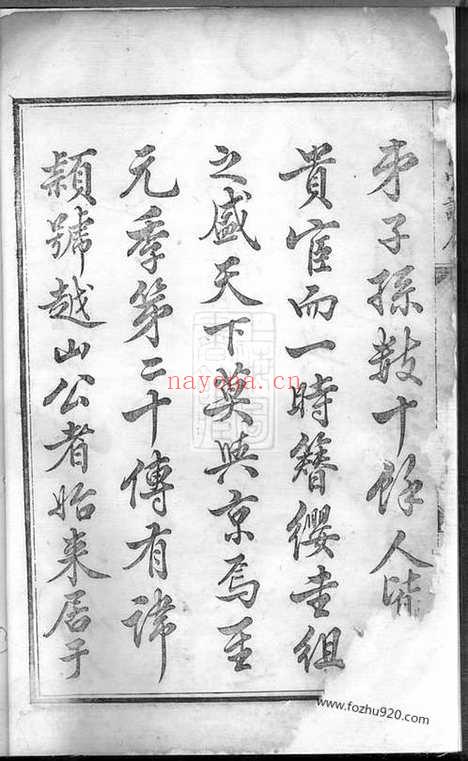 弟子孫數十餘人皆
貴宦而一時簪纓圭組
之盛天下莫與京焉至
元季第二十傳有諱
穎號越山公者始来居于
nayona.cn
www.fozhu920.com